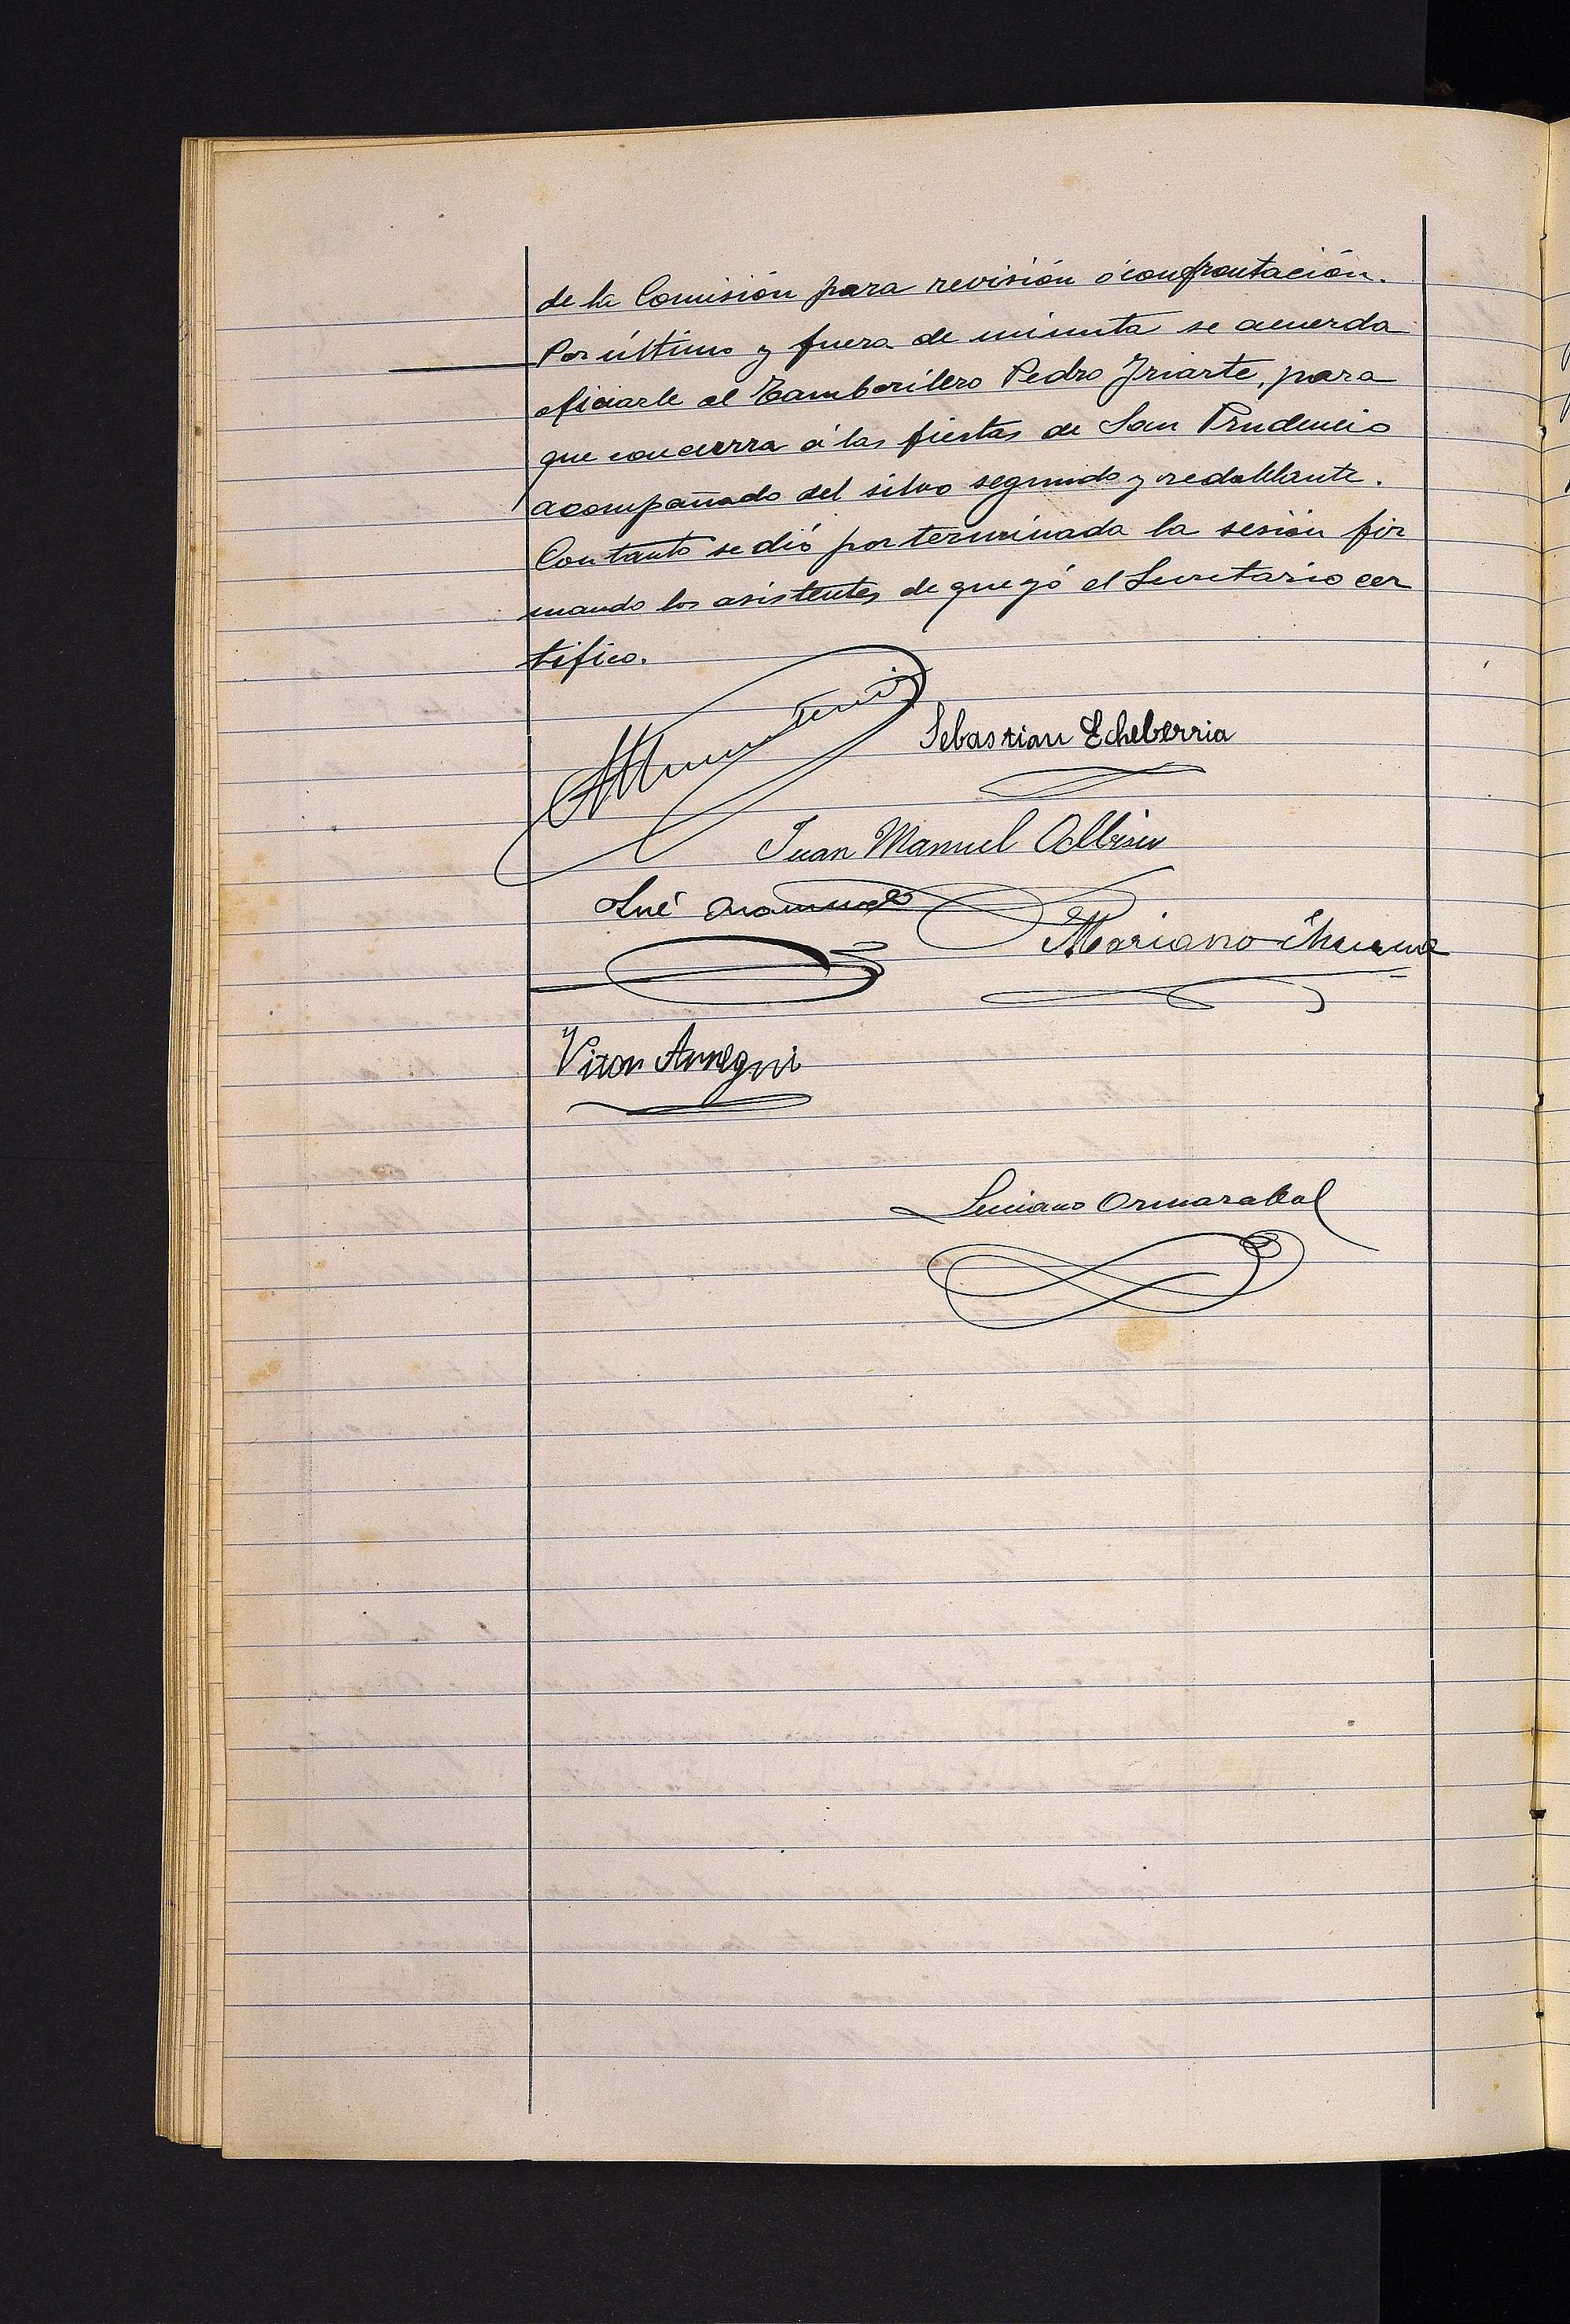 de la Comisión para revisión ó confrontación.
Por último y fuera de minuta se acuerda
oficiarle al Tamborilero Pedro Yriarte, para
que concurra á las fiestas de San Prudencio
acompañado del silvo segundo y redoblante.
Con tanto se dió por terminada la sesión fir
mando los asistentes de que yó el Secretario cer
tifico.
Sebastian Echeberria
Juan Manuel Albisu
José
Mariano
Luciano Ormazabal